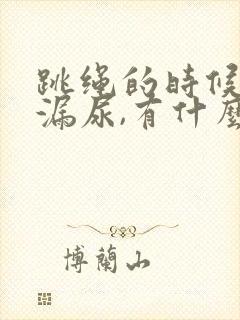 跳绳的时候
漏尿,有什麼
博蘭山